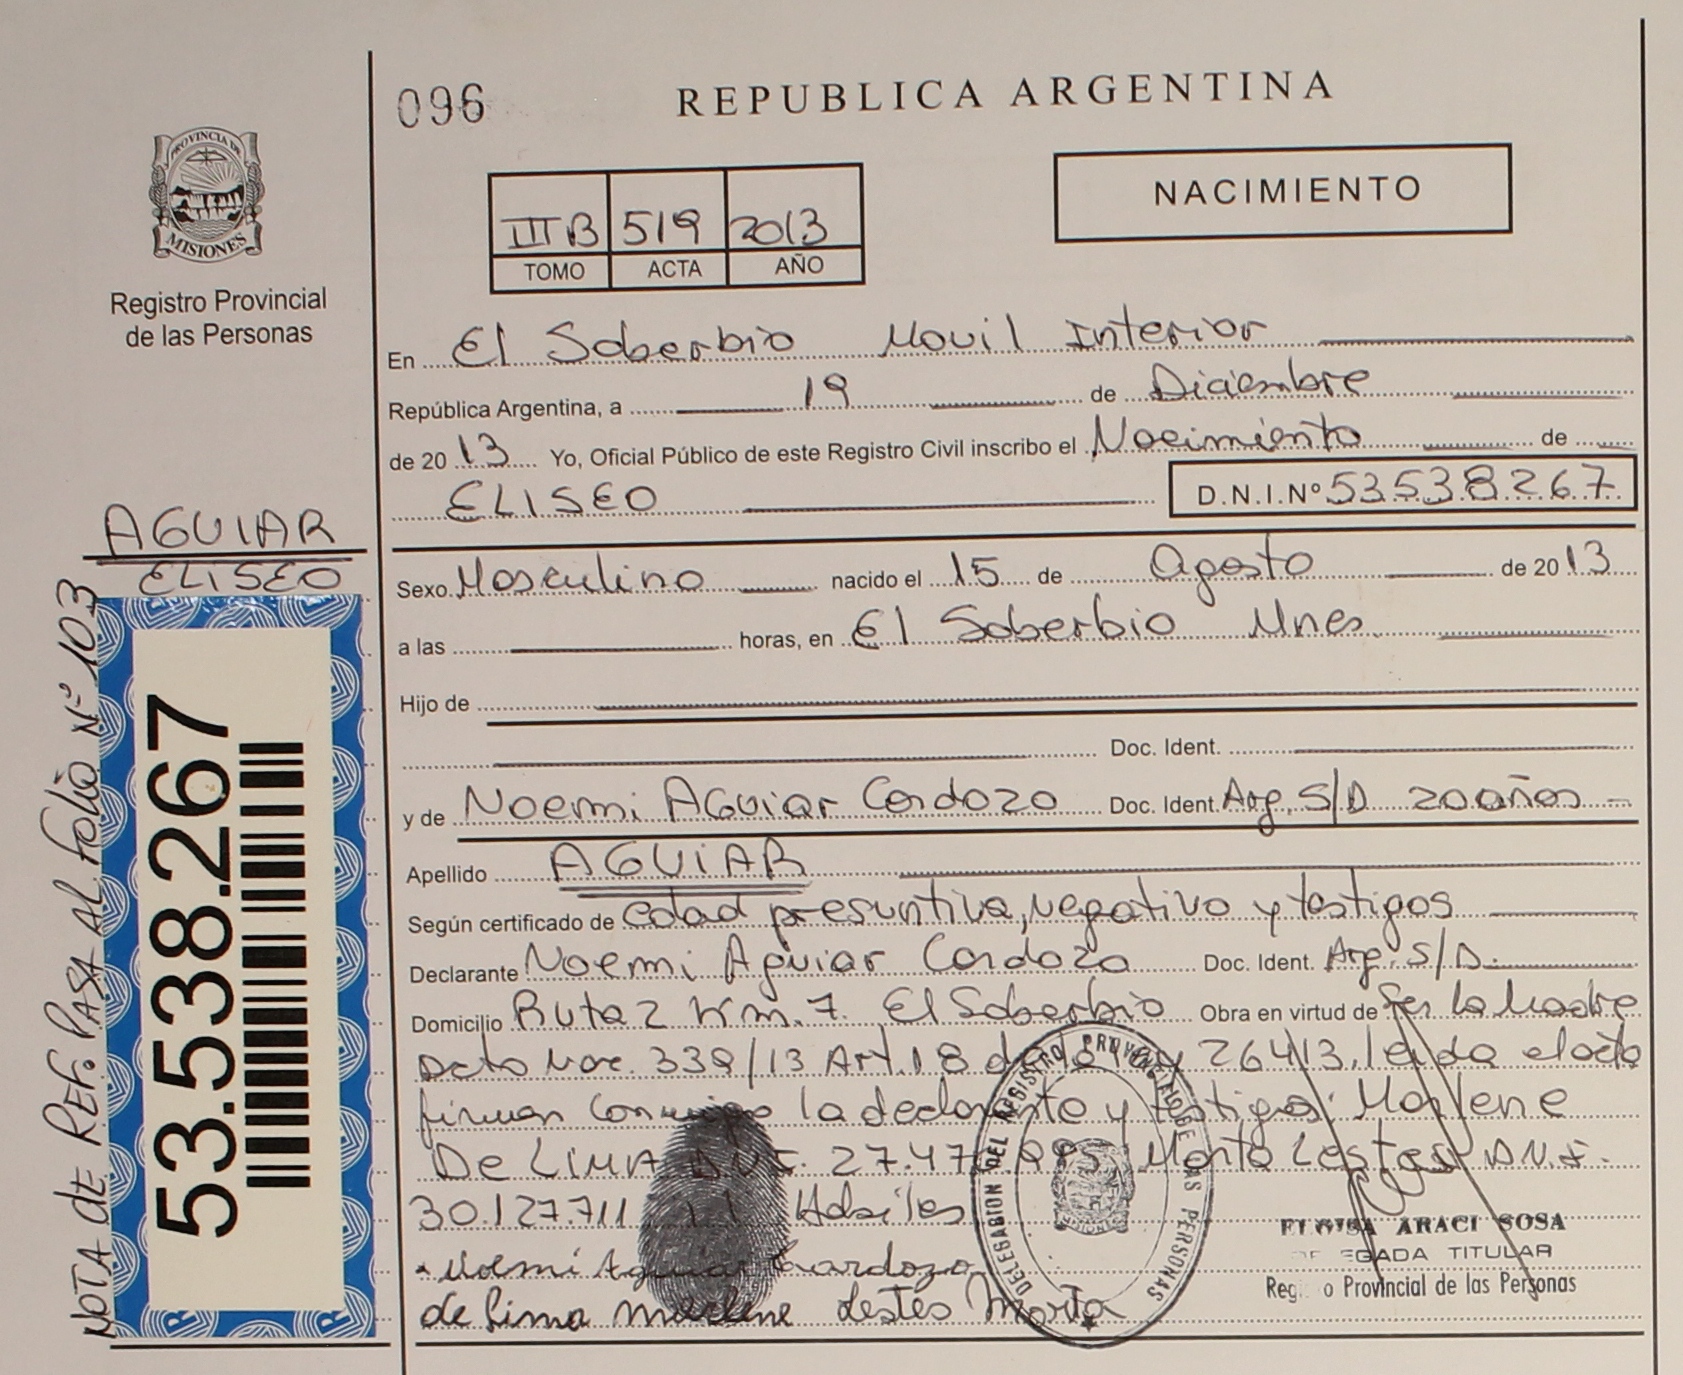 096
REPUBLICA ARGENTINA
PROVINCIA DE
MISIONES
Registro Provincial
de las Personas
III B 519 2013
TOMO ACTA AÑO
NACIMIENTO
En El Soberbio Movil Interior
República Argentina, a 19 de Diciembre
de 2013 Yo, Oficial Público de este Registro Civil inscribo el Nacimiento de
ELISEO D.N.I.Nº 53538267
AGUIAR
ELISEO
Sexo Masculino nacido el 15 de Agosto de 2013
a las horas, en El Soberbio Mnes
Hijo de
Doc. Ident.
y de Noemi Aguiar Cardozo Doc. Ident. Arg. S/D 20 años
Apellido AGUIAR
Según certificado de edad presuntiva, negativo y testigos
Declarante Noemi Aguiar Cardozo Doc. Ident. Arg. S/D.
Domicilio Ruta 2 Km. 7. El Soberbio Obra en virtud de Ser la Madre
Dcto Nac. 339/13 Art. 18 de la 26413, leida el acta
firman conmigo la declarante y testigos: Marlene
De LIMA D.N.I. 27.47 Marta Lestes D.N.I.
30.127.711 Habiles
Noemi Aguiar Cardozo
de Lima Marlene Lestes Marta
DELEGACION DEL REGISTRO PROVINCIAL DE LAS PERSONAS
ELOISA ARACI SOSA
DELEGADA TITULAR
Registro Provincial de las Personas
53.538.267
NOTA de REF: PASA AL Folio Nº 103